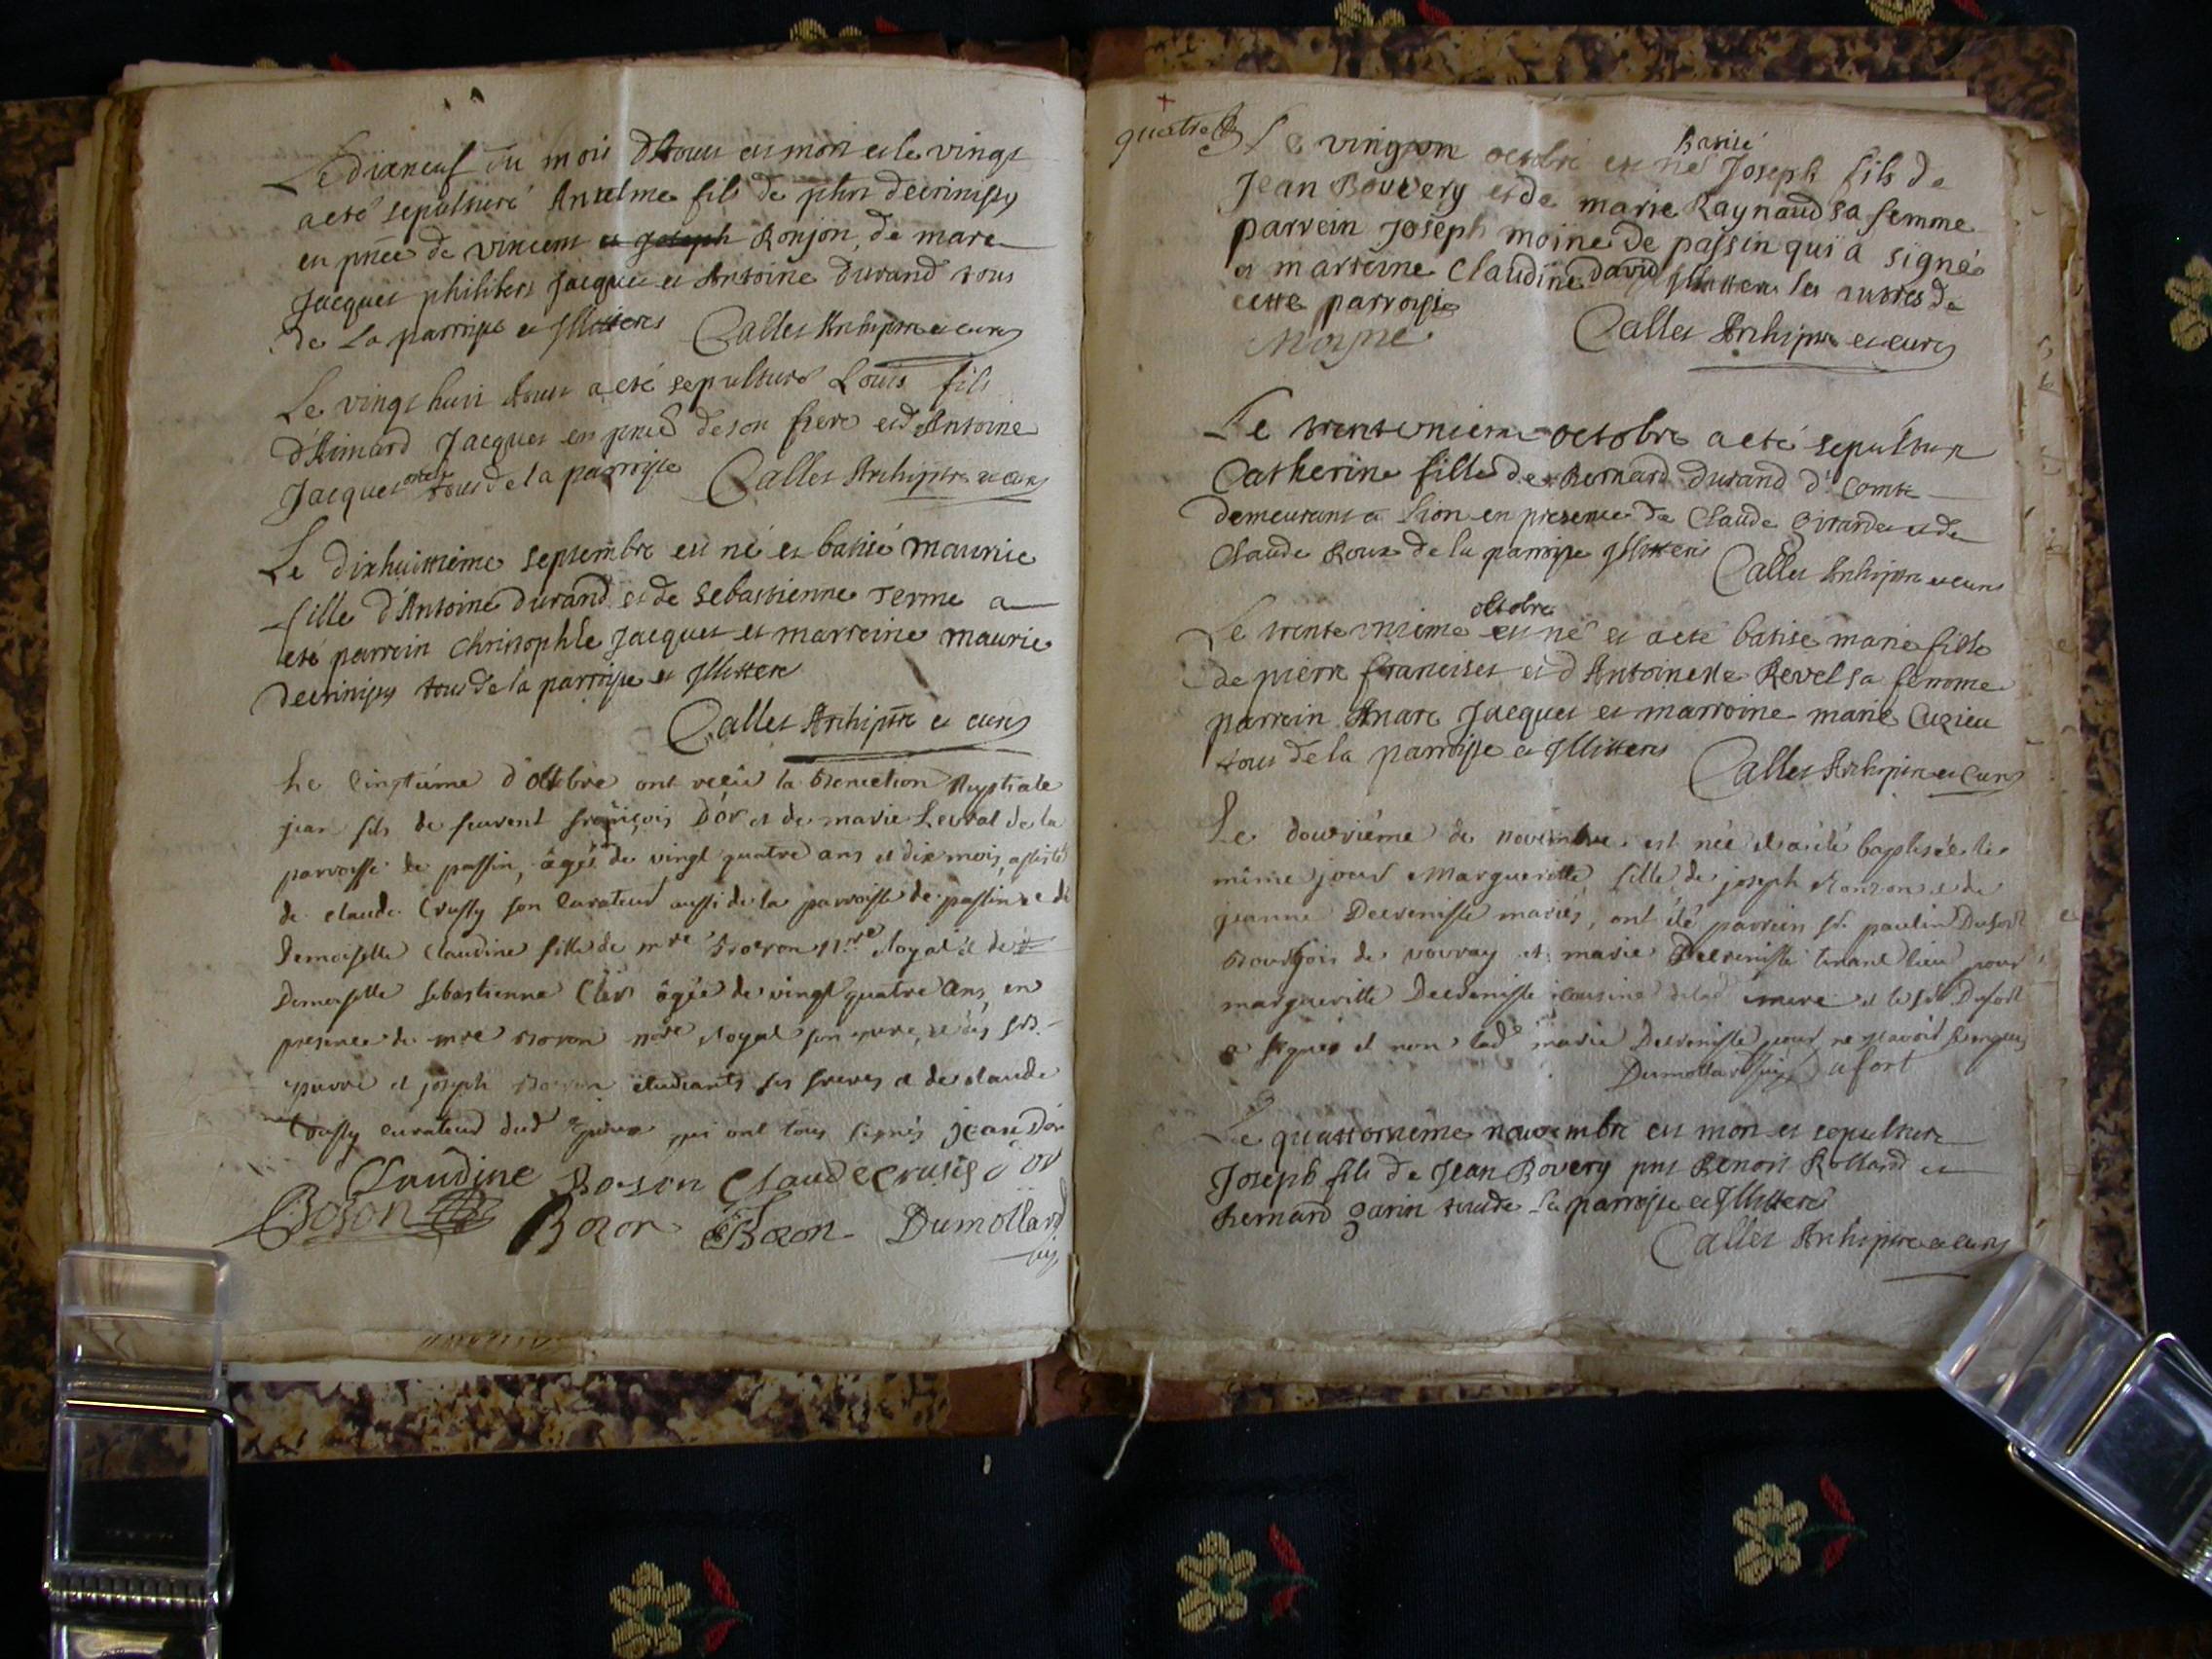 Le dixneuf du mois d'Aoust est mort et le vingt
a eté sepulturé Antelme fils de phtri decrinissy
en pnce de vincent et Joseph Ronjon, de marc
Jacquet philibert Jacquet et Antoine durand tous
de La parroisse et Illitteres Callet Archiptre et curé
Le vingt huit Aoust a eté sepulturé Louis fils
d'Aimard Jacquet en pnce de son frere et d'Antoine
Jacquet tous de la parroisse Callet Archiptre et curé
Le dixhuitieme septembre est né et batisé maurise
fille d'Antoine durand et de sebastienne Terme a
eté parrein Christophle Jacquet et marreine maurise
decrinissy tous de la parroisse et Illittere
Callet Archiptre et curé
Le cinqtiéme d'Octbre ont reçu la Benection Nuptiale
jean fils de feurent françois D'or et de marie Levrat de la
parroisse de passin, âgés de vingt quatre ans et dix mois, assisté
de claude Crussy son curateur aussi de la parroisse de passin et de
Demoiselle Claudine fille de mre Boron nre Royal et de
Demoiselle sebastienne Clér âgée de vingt quatre Ans, en
presence de mre Boron nore Royal son pere, et des srs
pierre et joseph Boron étudiants ses freres et de claude
Crussy curateur dud Epoux qui ont tous signés jean D'or
Claudine Boron Claude Crussy D'or
Boron Boron Boron Dumollard
vic
quatre
Batisé
Le vingt octobre est né Joseph fils de
Jean Bovery et de marie Raynaud sa femme
parrein Joseph moine de passin qui a signé
et marreine Claudine david Illittere les autres de
cette parroisse
Moyne Callet Archiptre et curé
Le trentunieme octobre a eté sepulturé
Catherine fille de Bernard durand d' Comte
demeurant a Lion en presence de Claude Girardet et de
Claude Roux de la parroisse Illitteres
Callet Archiptre et curé
octobre
Le trente unieme est né et a eté batisé marie fille
de pierre franciset et d'Antoinette Revel sa femme
parrein Anarc Jacquet et marreine marie Cuzieu
tous de la parroisse et Illitteres Callet Archiptre et curé
Le douziéme de novembre est née et a été baptisée le
même jour Marguerite fille de joseph Ronjon et de
jeanne Decrenisse mariés, ont été parrein sr. paulin Dufort
Bourgois de vovray et marie Decrenisse tenant lieu pour
marguerite Decrenisse cousine delad mere et le sr. Dufort
a signé et non lad marie Decrenisse pour ne sçavoir
Dumollard vic Dufort
Le quattorsieme novembre est mort et sepulturé
Joseph fils de Jean Bovery pnt Benoit Rolland et
Bernard garin tous de la parroisse et Illitteres
Callet Archiptre et curé